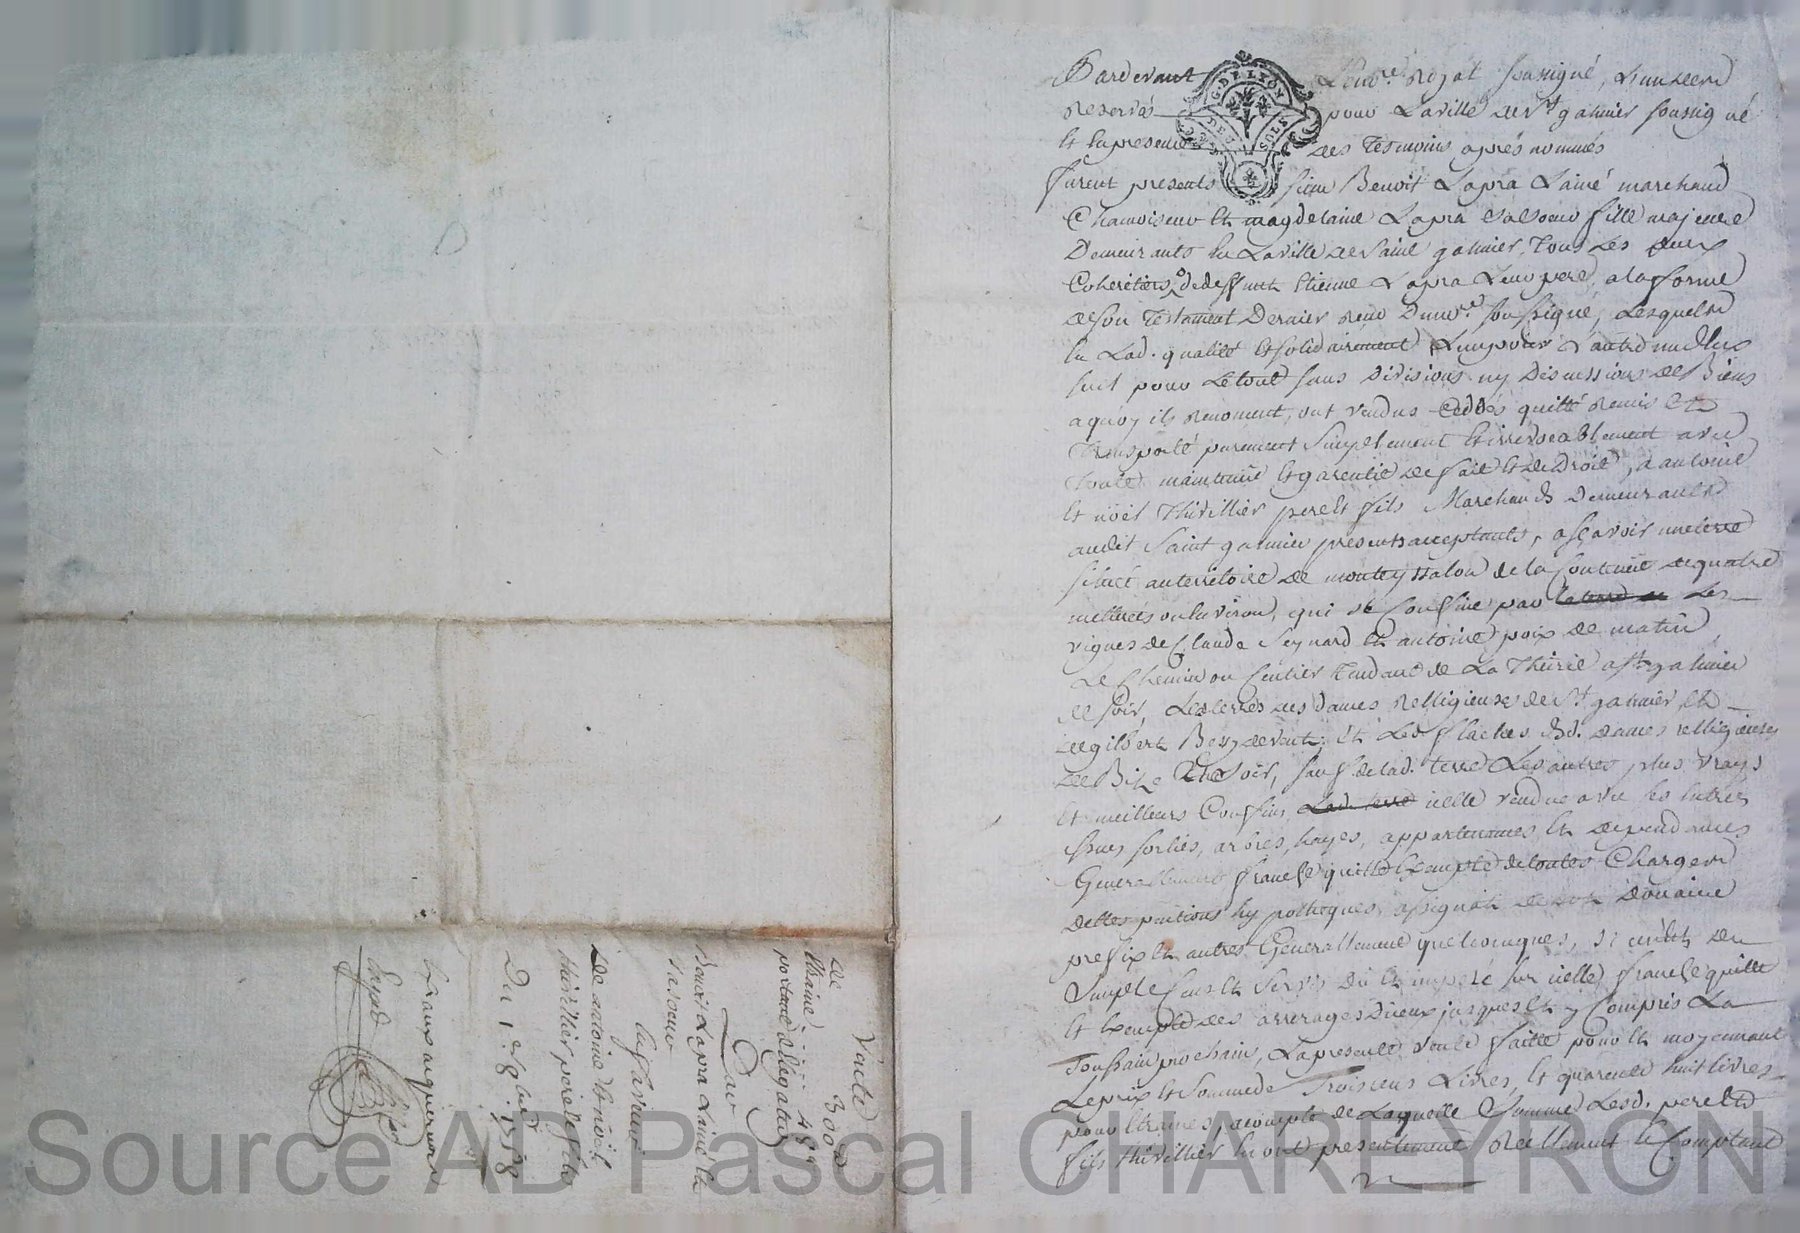 Pardevant Le no.re Royal soussigné, L'un des
reservés pour La ville de St galmier soussigné
Et En presence des Tesmoins aprés nommés
furent presents sieur Benoit Lapra L'ainé marchand
Chamoiseur Et magdelaine Lapra sa soeur fille majeure
Demeurants En La ville de Saint galmier, Tous Les deux
Coheritiers de deffunt Etienne Lapra Leur pere, a la forme
de son Testament Dernier receu Du no.re soussigné, Lesquels
En Lad. qualité Et solidairement L'un pour L'autre
seul pour Le tout sans Divisions ny Discussions de Biens
a quoy ils renoncent, ont vendus cedés quitté Remis Et
Transporté purement Simplement Et irrevocablement avec
toute maintenüe Et garentie de fait Et de Droit, a antoine
Et noël Thivillier pere Et fils Marchands Demeurants
audit Saint galmier presents acceptants, asçavoir une terre
situeé au territoire de monteyssalon de la Contenüe de quatre
metterées ou Environ, qui se Confine par Les
vignes de Claude Seynard Et antoine poix de matin,
Le Chemin ou sentier Tendant de La Thiérie a St galmier
de soir, Les terres des Dames Relligieuses de St galmier Et
de gilbert Bey de vent; Et Les dd. Dames relligieuses
de Bize Et soir, sauf de lad. terre Les autres plus vrays
Et meilleurs Confins icelle vendue avec ses Entrées
issues sorties, arbres, hayes, appartenances Et dependances
Generallement franche quitte Exempte de toutes Charges
dettes pentions hypotheques, assignat de dot Douaire
prefix Et autres Generallement quelconques, si
Simple Cens Et Servis Dû Et imposé sur icelle franche quitte
Et Exempte des arrerages D'iceux jusques Et y Compris La
Toussain prochain, La presente vente faitte pour Et moyennant
Le prix Et Somme de Trois cens Livres, Et quarente huit livres
pour Etraines, acompte de Laquelle Somme Lesd. pere Et
fils Thivillier En ont presentement Reellement Et Comptant
Vente
De 300#
Etraine 48#
portant delegation
Par
Benoit Lapra L'ainé Et
sa soeur
En faveur
De antoine Et noël
thivillier pere Et fils
Du 1. 8bre 1758